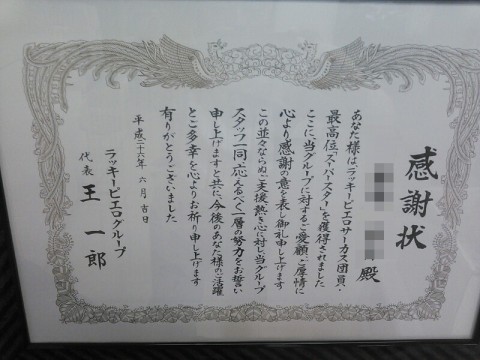 感謝状
殿
あなた様は、ラッキーピエロサーカス団員・
最高位「スーパースター」を獲得されました
ここに、当グループに対するご愛顧、ご厚情に
心より感謝の意を表し御礼申し上げます
この並々ならぬご支援、熱き心に対し当グループ
スタッフ一同、応えるべく一層の努力をお誓い
申し上げますと共に、今後のあなた様のご活躍
とご多幸を心よりお祈り申し上げます
有りがとうございました
平成二十六年 六月 吉日
ラッキーピエログループ
代表 王 一郎